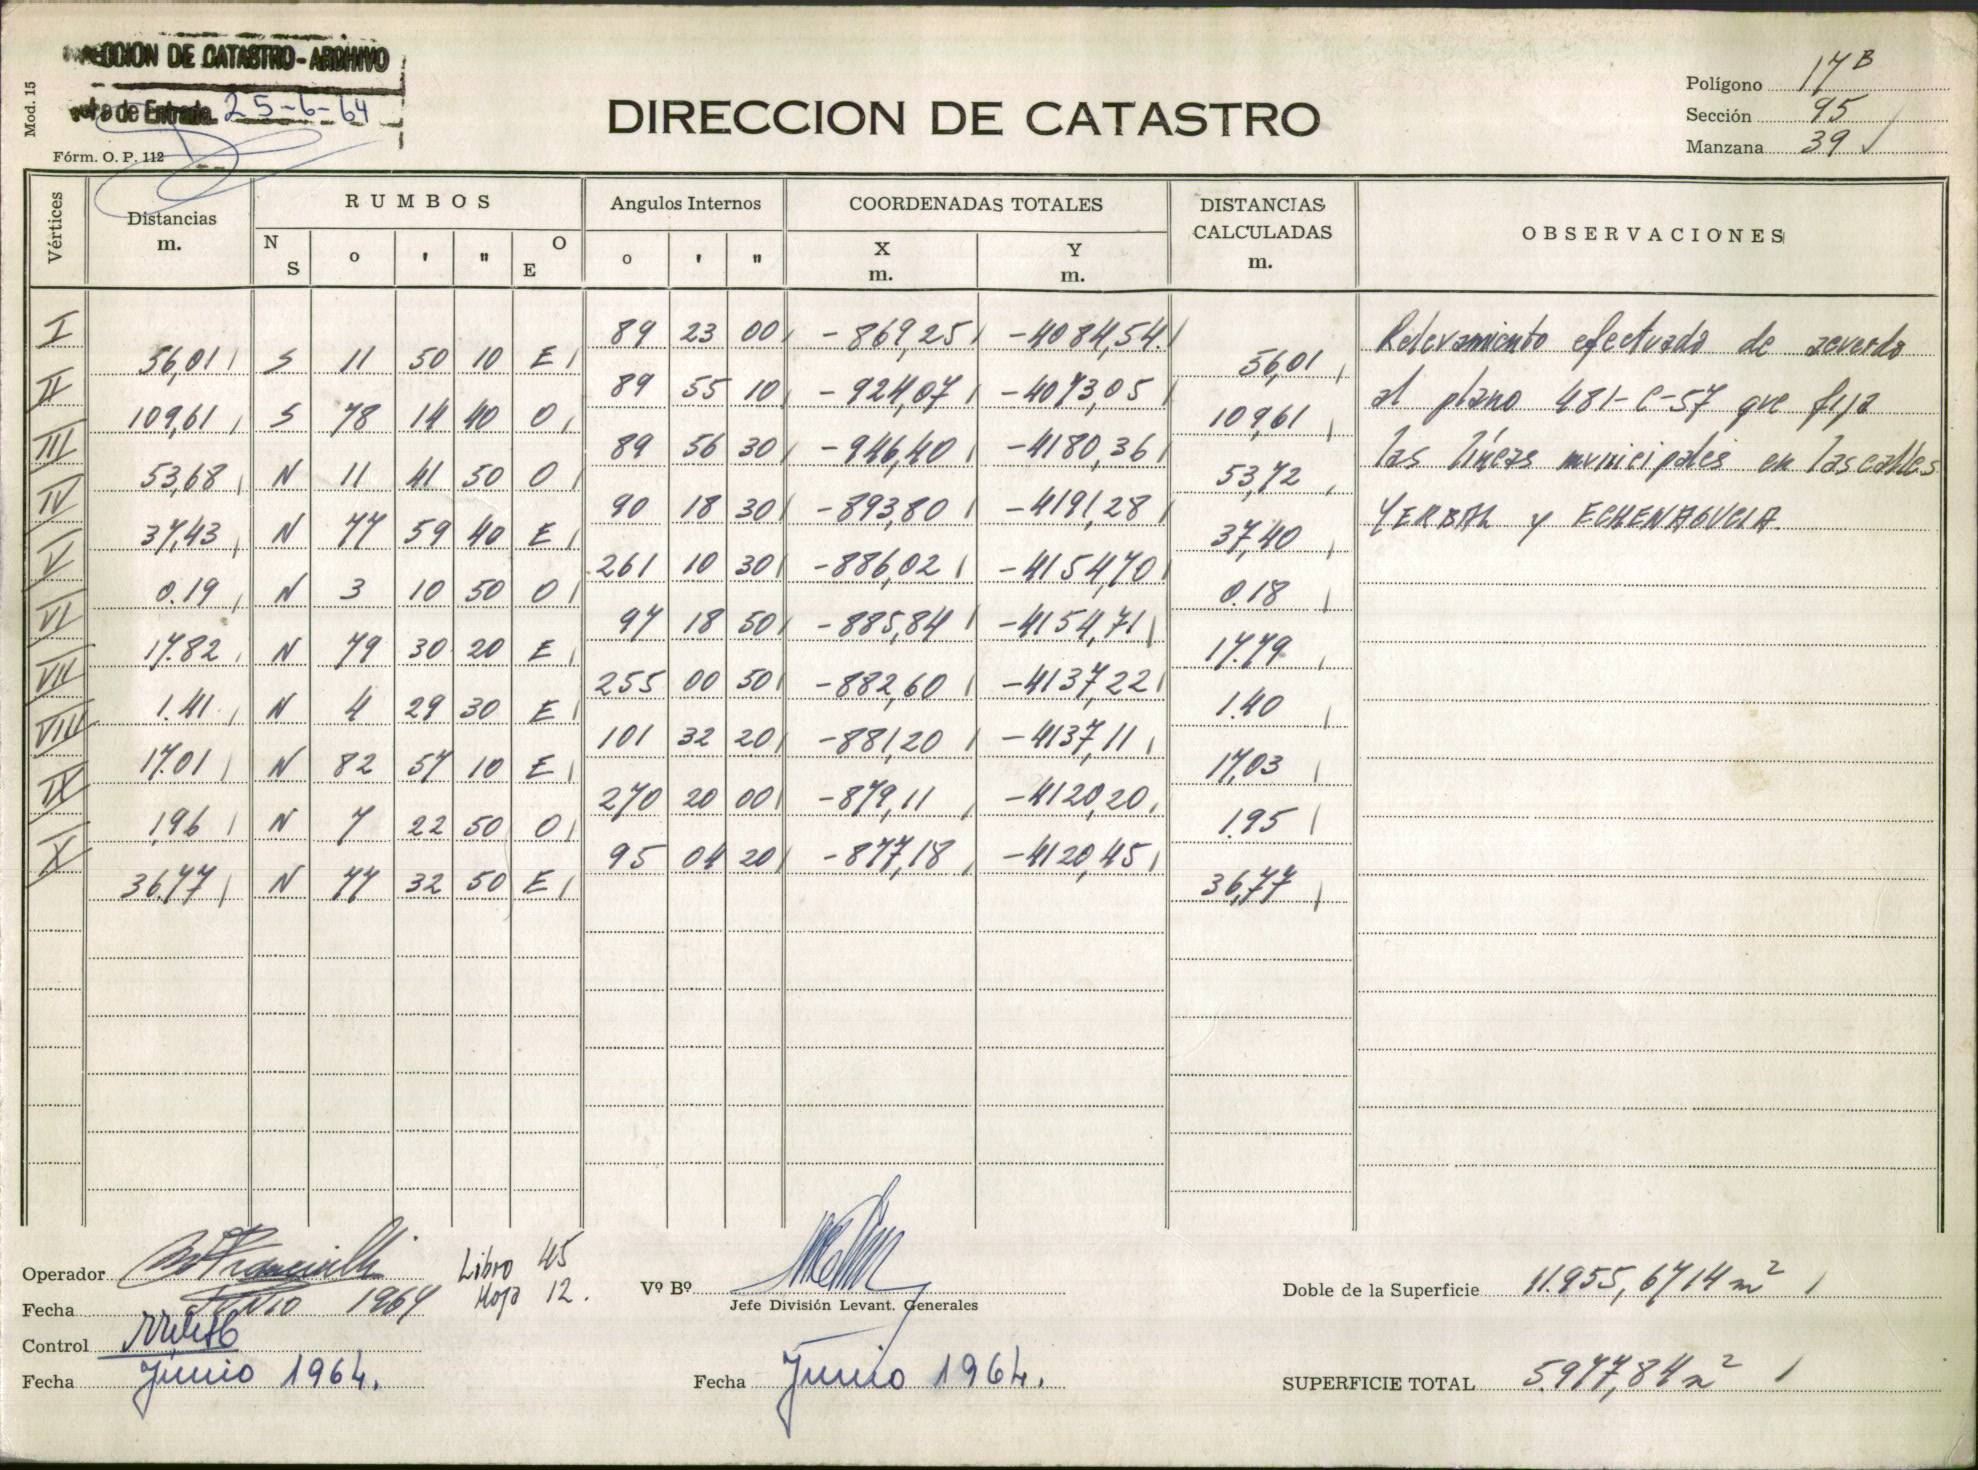 DIRECCION DE CATASTRO - ARCHIVO
de Entrada 25-6-64
Mod. 15
Fórm. O. P. 112
DIRECCION DE CATASTRO
Polígono 17 B
Sección 95
Manzana 39
Vértices
Distancias
m.
RUMBOS
N S
o ' "
O E
Angulos Internos
o ' "
COORDENADAS TOTALES
X
m.
Y
m.
DISTANCIAS
CALCULADAS
m.
OBSERVACIONES
I 89 23 00 -869,25 -4084,54
56,01 S 11 50 10 E 56,01
II 89 55 10 -924,07 -4073,05
109,61 S 78 14 40 O 109,61
III 89 56 30 -946,40 -4180,36
53,68 N 11 41 50 O 53,72
IV 90 18 30 -893,80 -4191,28
37,43 N 77 59 40 E 37,40
V 261 10 30 -886,02 -4154,70
0.19 N 3 10 50 O 0.18
VI 97 18 50 -885,84 -4154,71
17.82 N 79 30 20 E 17.79
VII 255 00 50 -882,60 -4137,22
1.41 N 4 29 30 E 1.40
VIII 101 32 20 -881,20 -4137,11
17.01 N 82 57 10 E 17,03
IX 270 20 00 -879,11 -4120,20
1,96 N 7 22 50 O 1.95
X 95 04 20 -877,18 -4120,45
36.77 N 77 32 50 E 36,77
Relevamiento efectuado de acuerdo
al plano 481-C-57 que fija
las líneas municipales en las calles
YERBAL y ECHENAGUCIA.
Operador
Libro 45
Hoja 12.
Fecha Junio 1964
Control
Fecha Junio 1964.
Vº Bº
Jefe División Levant. Generales
Fecha Junio 1964.
Doble de la Superficie 11.955,6714 m²
SUPERFICIE TOTAL 5.977,84 m²